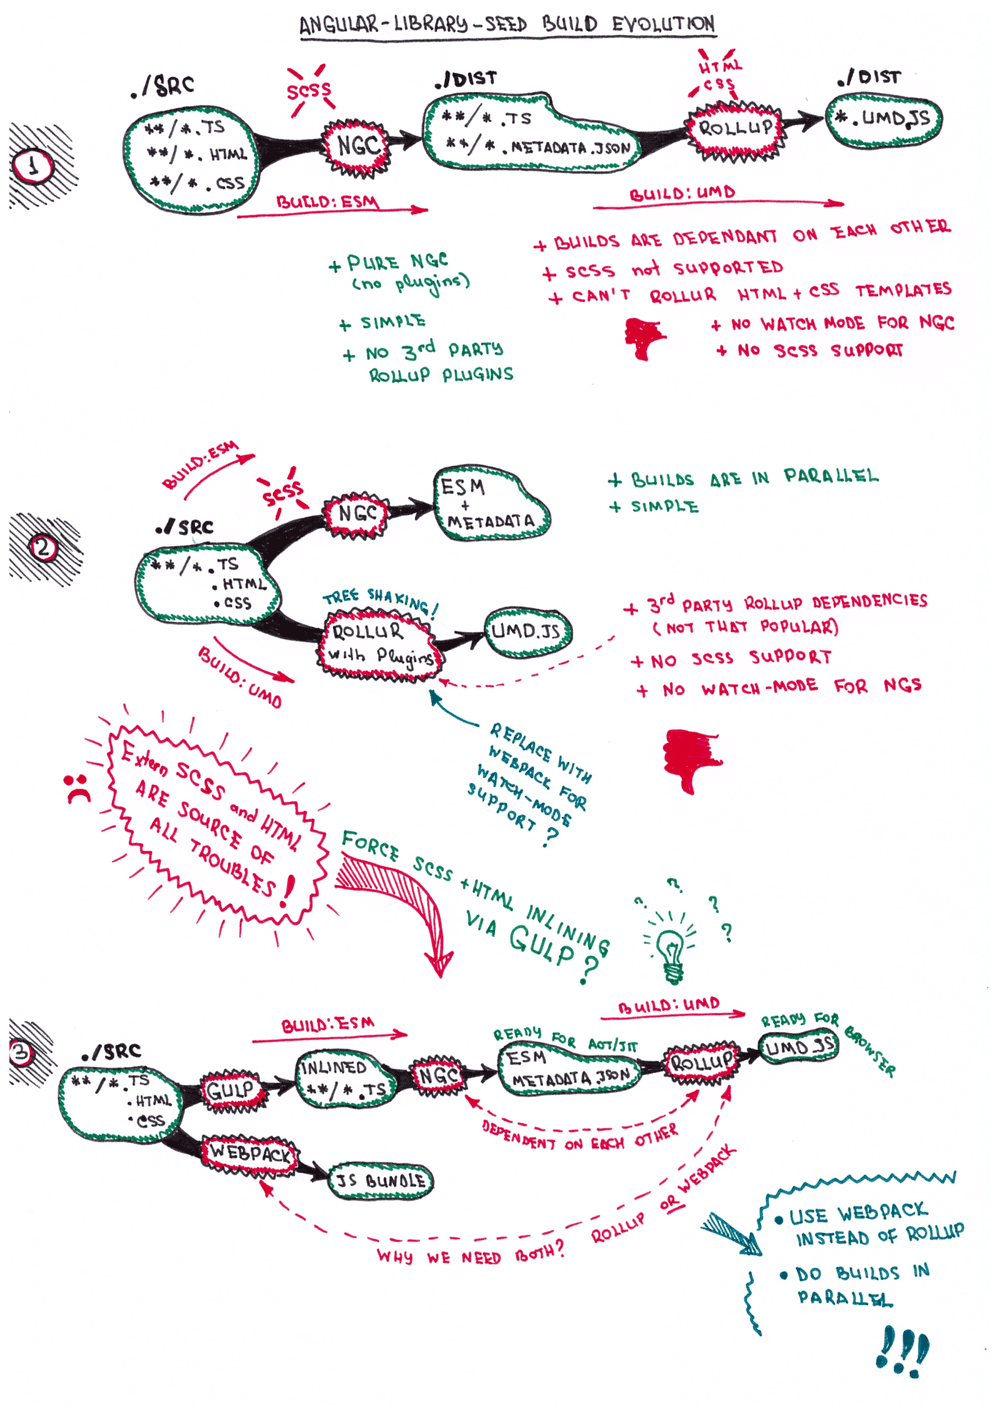 ANGULAR-LIBRARY-SEED BUILD EVOLUTION
1
./SRC
**/*.TS
**/*.HTML
**/*.CSS
SCSS
NGC
BUILD:ESM
./DIST
**/*.TS
**/*.METADATA.JSON
HTML
CSS
ROLLUP
BUILD:UMD
./DIST
*.UMD.JS
+ PURE NGC
(no plugins)
+ SIMPLE
+ NO 3rd PARTY
ROLLUP PLUGINS
+ BUILDS ARE DEPENDANT ON EACH OTHER
+ SCSS not SUPPORTED
+ CAN'T ROLLUR HTML + CSS TEMPLATES
+ NO WATCH MODE FOR NGC
+ NO SCSS SUPPORT
2
BUILD:ESM
SCSS
./SRC
**/*.TS
.HTML
.CSS
NGC
ESM
+
METADATA
TREE SHAKING!
ROLLUR
with Plugins
UMD.JS
BUILD:UMD
+ BUILDS ARE IN PARALLEL
+ SIMPLE
+ 3rd PARTY ROLLUP DEPENDENCIES
(NOT THAT POPULAR)
+ NO SCSS SUPPORT
+ NO WATCH-MODE FOR NGS
REPLACE WITH
WEBPACK FOR
WATCH-MODE
SUPPORT?
Extern SCSS and HTML
ARE SOURCE OF
ALL TROUBLES!
FORCE SCSS + HTML INLINING
VIA GULP?
? ? ? ?
3
./SRC
**/*.TS
.HTML
.CSS
BUILD:ESM
GULP
INLINED
**/*.TS
NGC
READY FOR AOT/JIT
ESM
METADATA.JSON
BUILD:UMD
ROLLUP
READY FOR BROWSER
UMD.JS
DEPENDENT ON EACH OTHER
WEBPACK
JS BUNDLE
WHY WE NEED BOTH? ROLLUP OR WEBPACK
• USE WEBPACK
INSTEAD OF ROLLUP
• DO BUILDS IN
PARALLEL
!!!